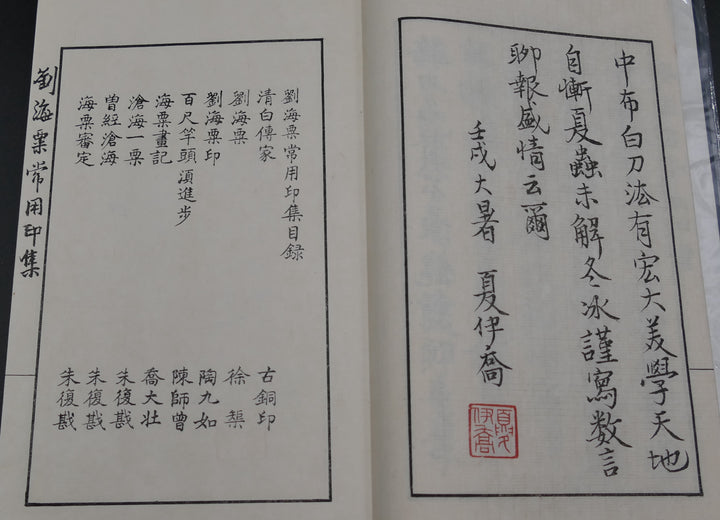 中布白刀法有宏大美學天地
自慚夏蟲未解冬冰謹寫数言
聊報盛情云爾
壬戌大暑 夏伊喬
夏伊喬
劉海粟常用印集目録
清白傳家 古銅印
劉海粟 徐槊
劉海粟印 陶九如
百尺竿頭須進步 陳師曾
海粟畫記 喬大壯
滄海一粟 朱復戡
曽經滄海 朱復戡
海粟審定 朱復戡
劉海粟常用印集